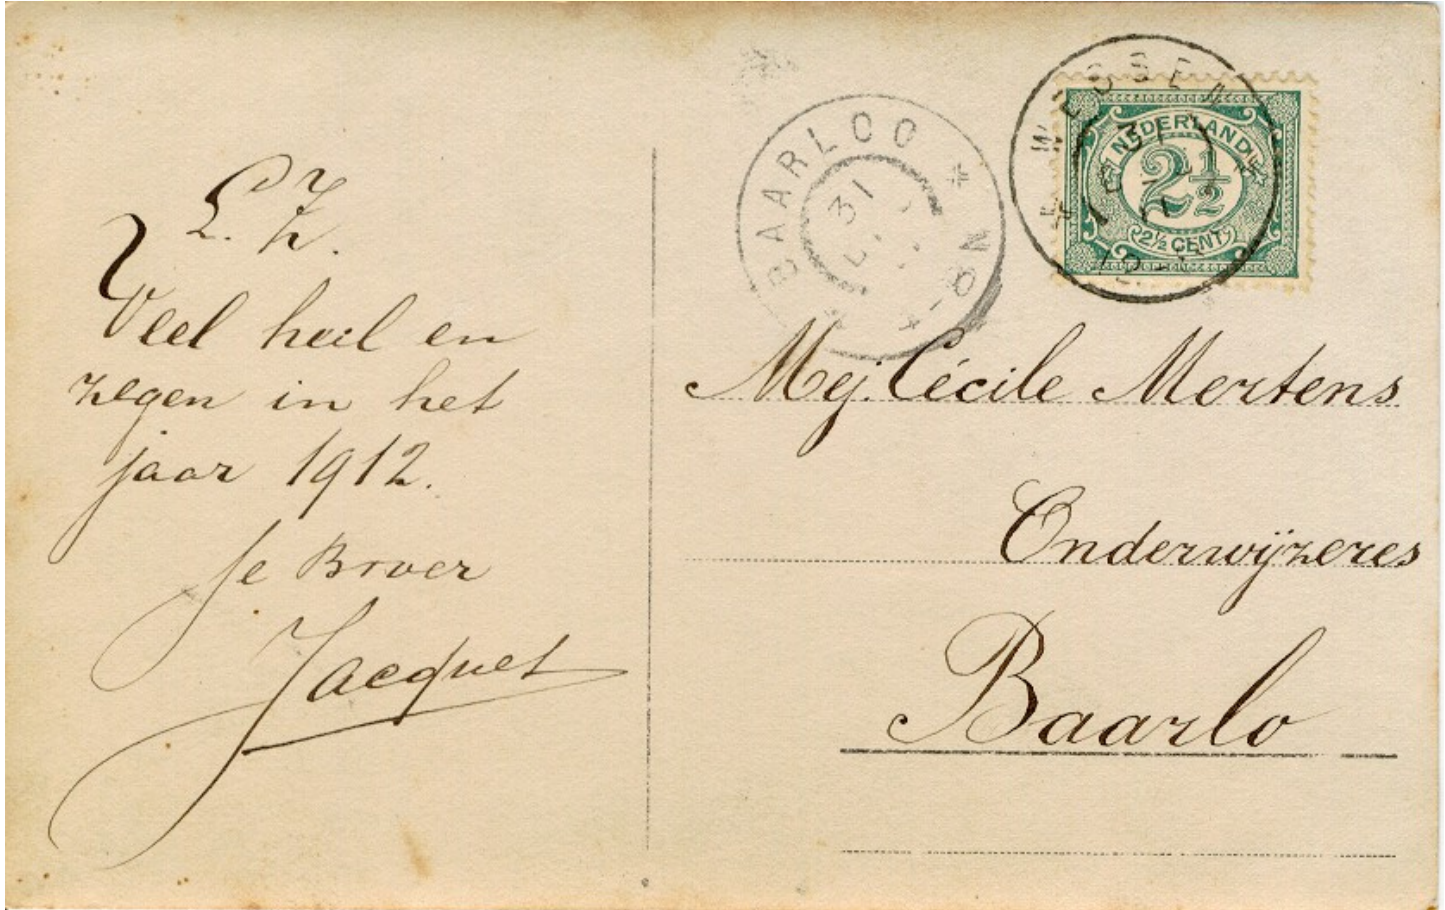 L. Z.
Veel heil en
zegen in het
jaar 1912.
Je Broer
Jacques
BAARLOO
31
WESSEM
31
11
NEDERLAND
2½
2½ CENT
Mej. Cécile Mertens
Onderwijzeres
Baarlo